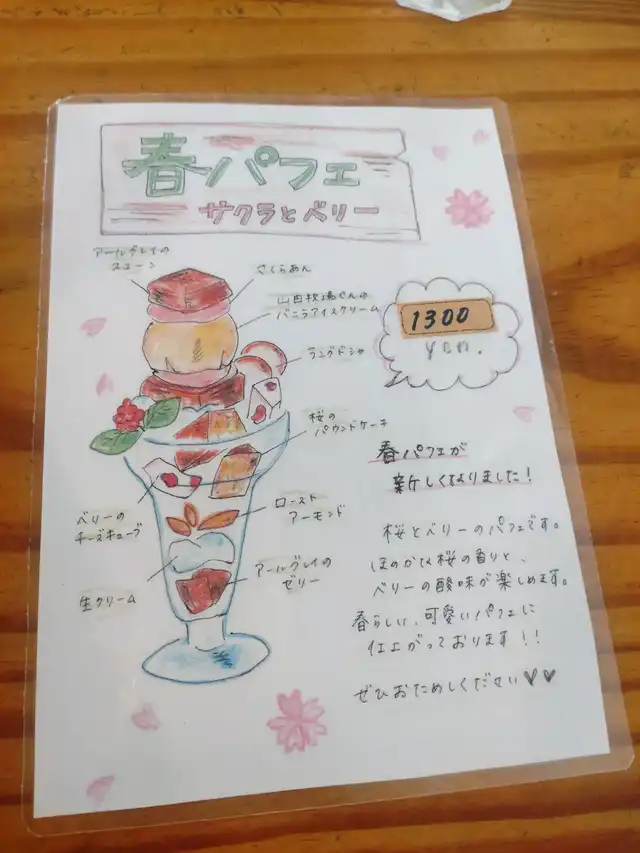 春パフェ
サクラとベリー
アールグレイの
スコーン
さくらあん
山田牧場さんの
バニラアイスクリーム
1300
yen.
ラングドシャ
桜の
パウンドケーキ
春パフェが
新しくなりました!
ベリーの
チーズキューブ
ロースト
アーモンド
生クリーム
アールグレイの
ゼリー
桜とベリーのパフェです。
ほのかな桜の香りと、
ベリーの酸味が楽しめます。
春らしい、可愛いパフェに
仕上がっております!!
ぜひおためしください♥♥